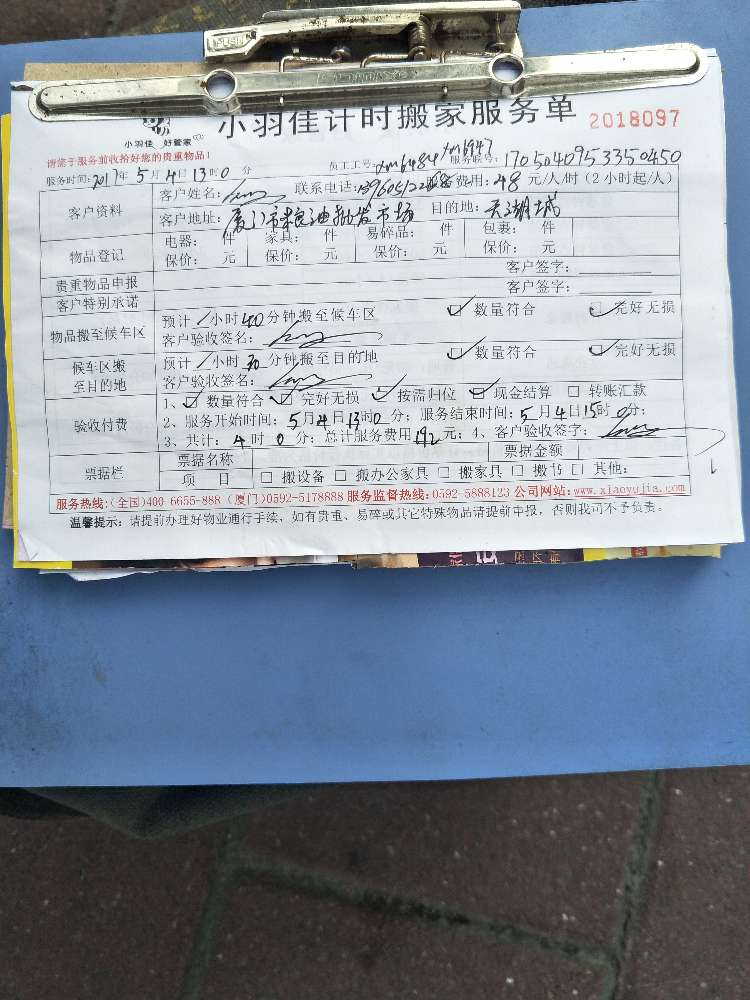 小羽佳 好管家
小羽佳计时搬家服务单 2018097
请您于服务前收拾好您的贵重物品!
员工工号: xm6484 xm6947 服务联号: 1705040953350450
服务时间: 2017年 5月 4日 13时 0 分
客户资料 客户姓名: 联系电话: 费用: 48 元/人/时 (2小时起/人)
客户地址: 厦门市粮油批发市场 目的地: 天湖城
物品登记 电器: 件 家具: 件 易碎品: 件 包裹: 件
保价: 元 保价: 元 保价: 元 保价: 元
贵重物品申报 客户签字:
客户特别承诺 客户签字:
物品搬至候车区 预计 1小时 40分钟搬至候车区 ☑ 数量符合 ☑ 完好无损
客户验收签名:
候车区搬至目的地 预计 1小时 30分钟搬至目的地 ☑ 数量符合 ☑ 完好无损
客户验收签名:
验收付费 1、☑ 数量符合 ☑ 完好无损 ☑ 按需归位 ☑ 现金结算 □ 转账汇款
2、服务开始时间: 5月4日13时0分; 服务结束时间: 5月4日15时0分;
3、共计: 4时 0分; 总计服务费用192元; 4、客户验收签字:
票据栏 票据名称 票据金额
项 目 □ 搬设备 □ 搬办公家具 □ 搬家具 □ 搬书 □ 其他:
服务热线:(全国)400-6655-888 (厦门)0592-5178888 服务监督热线:0592-5888123 公司网站:www.xiaoyujia.com
温馨提示: 请提前办理好物业通行手续, 如有贵重、易碎或其它特殊物品请提前申报, 否则我司不予负责。